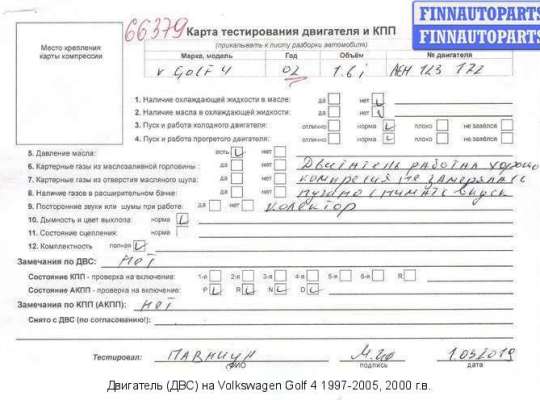 66379
Карта тестирования двигателя и КПП
(прикалывать к листу разборки автомобиля)
FINNAUTOPARTS
FINNAUTOPARTS
Место крепления карты компрессии
Марка, модель Год Объём № двигателя
v Golf 4 02 1.6 i AEH 123 172
1. Наличие охлаждающей жидкости в масле: да нет
2. Наличие масла в охлаждающей жидкости: да нет
3. Пуск и работа холодного двигателя: отлично норма плохо не завёлся
4. Пуск и работа прогретого двигателя: отлично норма плохо не завёлся
5. Давление масла: есть нет
6. Картерные газы из маслозаливной горловины: да нет Двигатель работал хорошо
7. Картерные газы из отверстия масляного щупа: да нет компресия не замерялась
8. Наличие газов в расширительном бачке: да нет нужно снимать впуск
9. Посторонние звуки или шумы при работе: да нет колектор
10. Дымность и цвет выхлопа: норма
11. Состояние сцепления: норма
12. Комплектность полная
Замечания по ДВС: нет
Состояние КПП - проверка на включение: 1-я 2-я 3-я 4-я 5-я 6-я R
Состояние АКПП - проверка на включение: P R N D
Замечания по КПП (АКПП): нет
Снято с ДВС (по согласованию!):
Тестировал:
ФИО подпись дата
Двигатель (ДВС) на Volkswagen Golf 4 1997-2005, 2000 г.в.